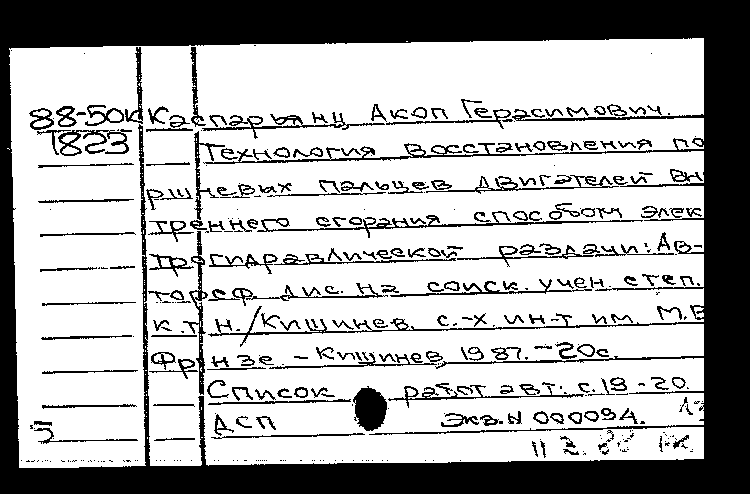 88-50к Каспарьянц Акоп Герасимович.
1823 Технология восстановления по
ршневых пальцев двигателей вн
треннего сгорания способом элек
трогидравлической раздачи: Ав-
тореф. дис. на соиск. учен. степ.
к.т.н./Кишинев. с.-х. ин-т им. М.В
Фрунзе - Кишинев, 1987. - 20с.
Список работ авт: с.19-20.
ДСП Экз. N 000094.
5